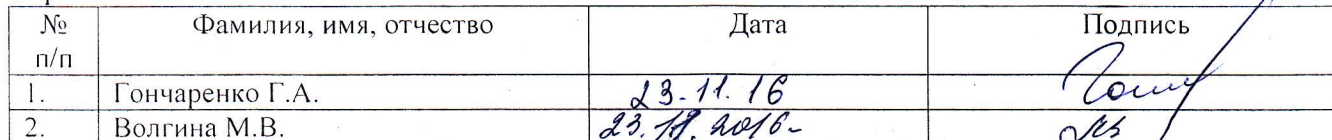 № п/п Фамилия, имя, отчество Дата Подпись
1. Гончаренко Г.А. 23.11.16
2. Волгина М.В. 2016